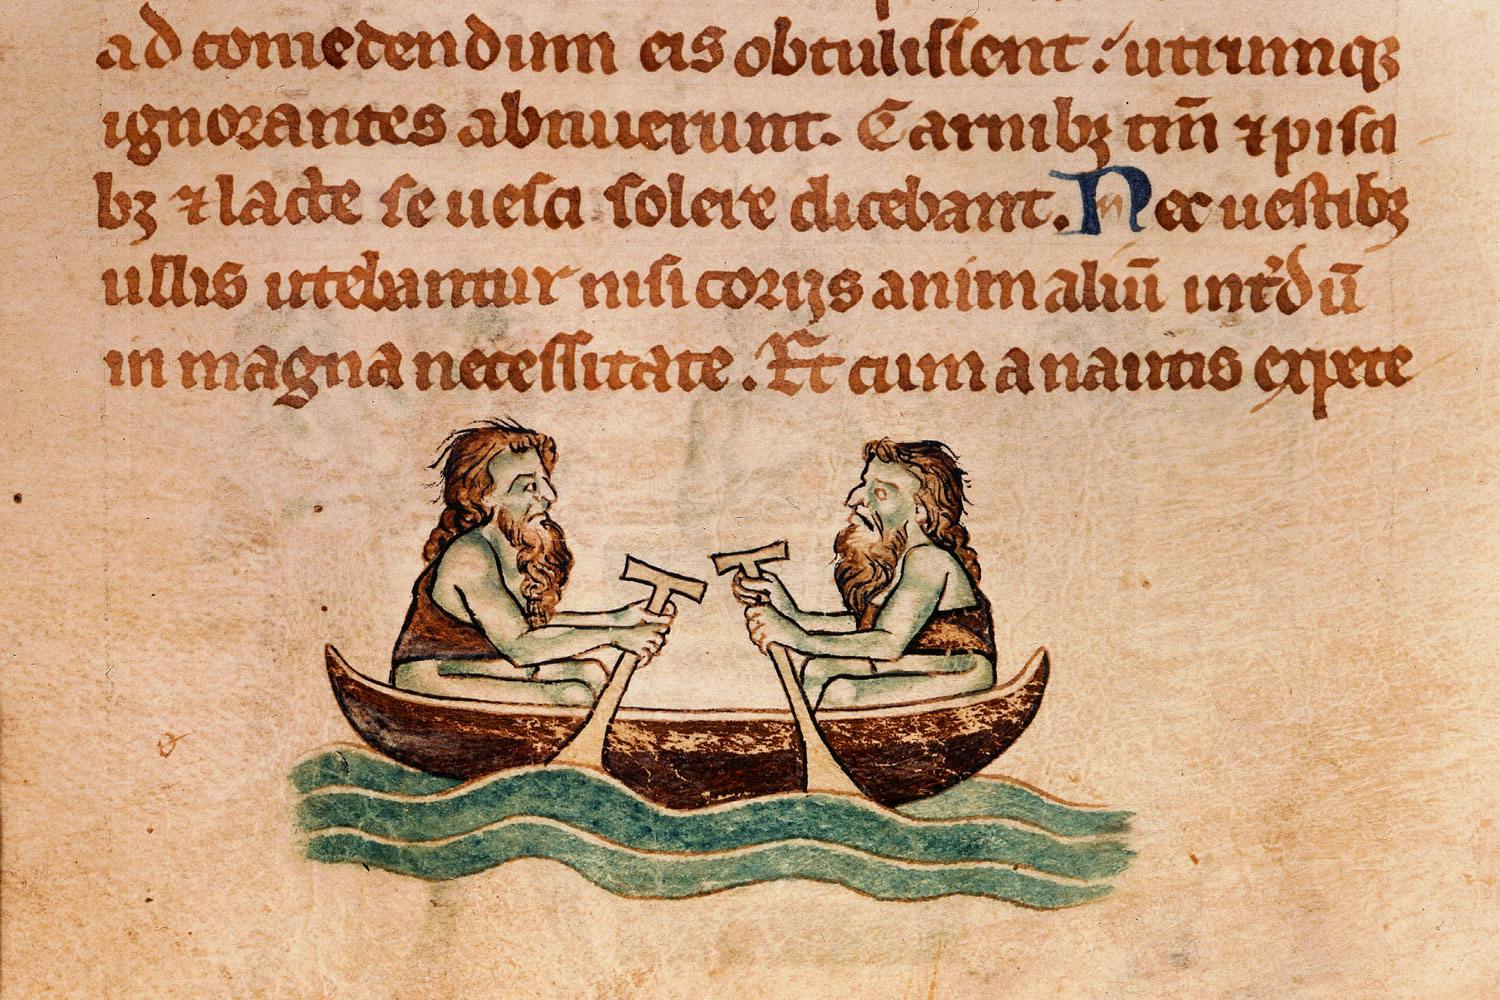 ad comedendum eis obtulissent: utrumqꝫ
ignorantes abnuerunt. Carnibꝫ tm̄ ⁊ pisci
bꝫ ⁊ lacte se uesci solere dicebant. Nec uestibꝫ
ullis utebantur nisi corijs animaliū int̾dū
in magna necessitate. Et cum a nautis expete